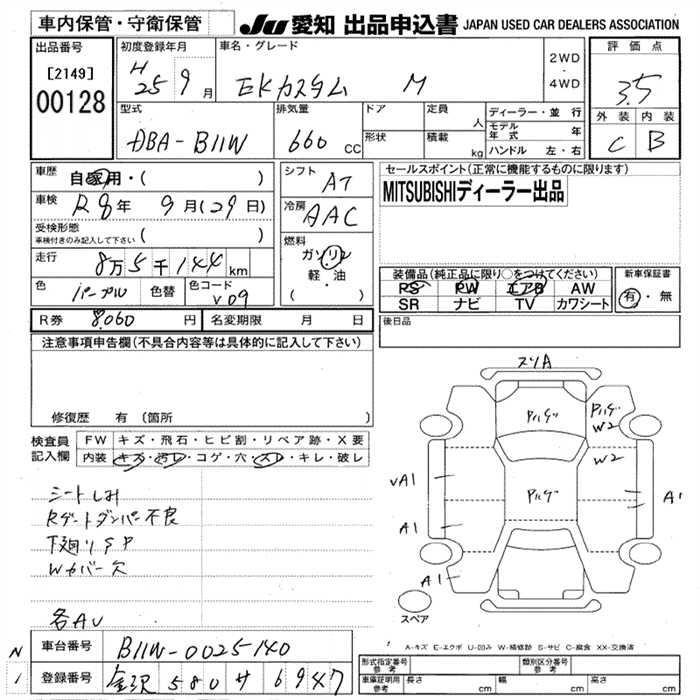 車内保管・守衛保管
JU 愛知 出品申込書 JAPAN USED CAR DEALERS ASSOCIATION
出品番号
[2149]
00128
初度登録年月
H 25 9月
車名・グレード
EKカスタム M
2WD
・
4WD
評価点
3.5
外装 内装
C B
型式
DBA-B11W
排気量
660 CC
ドア
形状
定員 人
積載 kg
ディーラー・並行
モデル年式 年
ハンドル 左・右
車歴
自家用・( )
車検
R8年 9月(29日)
受検形態
車検付きのみ記入して下さい ( )
走行
8万5千144km
色
パープル
色替
色コード
V09
シフト
AT
冷房
AAC
燃料
ガソリン
軽・油
( )
セールスポイント(正常に機能するものに限ります)
MITSUBISHIディーラー出品
装備品(純正品に限り○をつけてください)
PS PW エアB AW
SR ナビ TV カワシート
新車保証書
有・無
R券 8,060円
名変期限 月 日
後日品
注意事項申告欄(不具合内容等は具体的に記入して下さい)
修復歴 有 (箇所 )
検査員記入欄
FW キズ・飛石・ヒビ割・リペア跡・X要
内装 キズ・汚レ・コゲ・穴・スレ・キレ・破レ
シートしみ
Rゲートダンパー不良
下廻りSP
Wカバー欠
各AU
スリA
Pルゲ
Pルゲ
W2
W2
Pルゲ
VA1
A1
A1
A1
スペア
A-キズ E-エクボ U-凹み W-補修跡 S-サビ C-腐食 XX-交換済
N
1
車台番号
B11W-0025140
登録番号
金沢 580 サ 6947
形式指定番号
参考
類別区分番号
参考
車庫証明用
参考
長さ cm
幅 cm
高さ cm